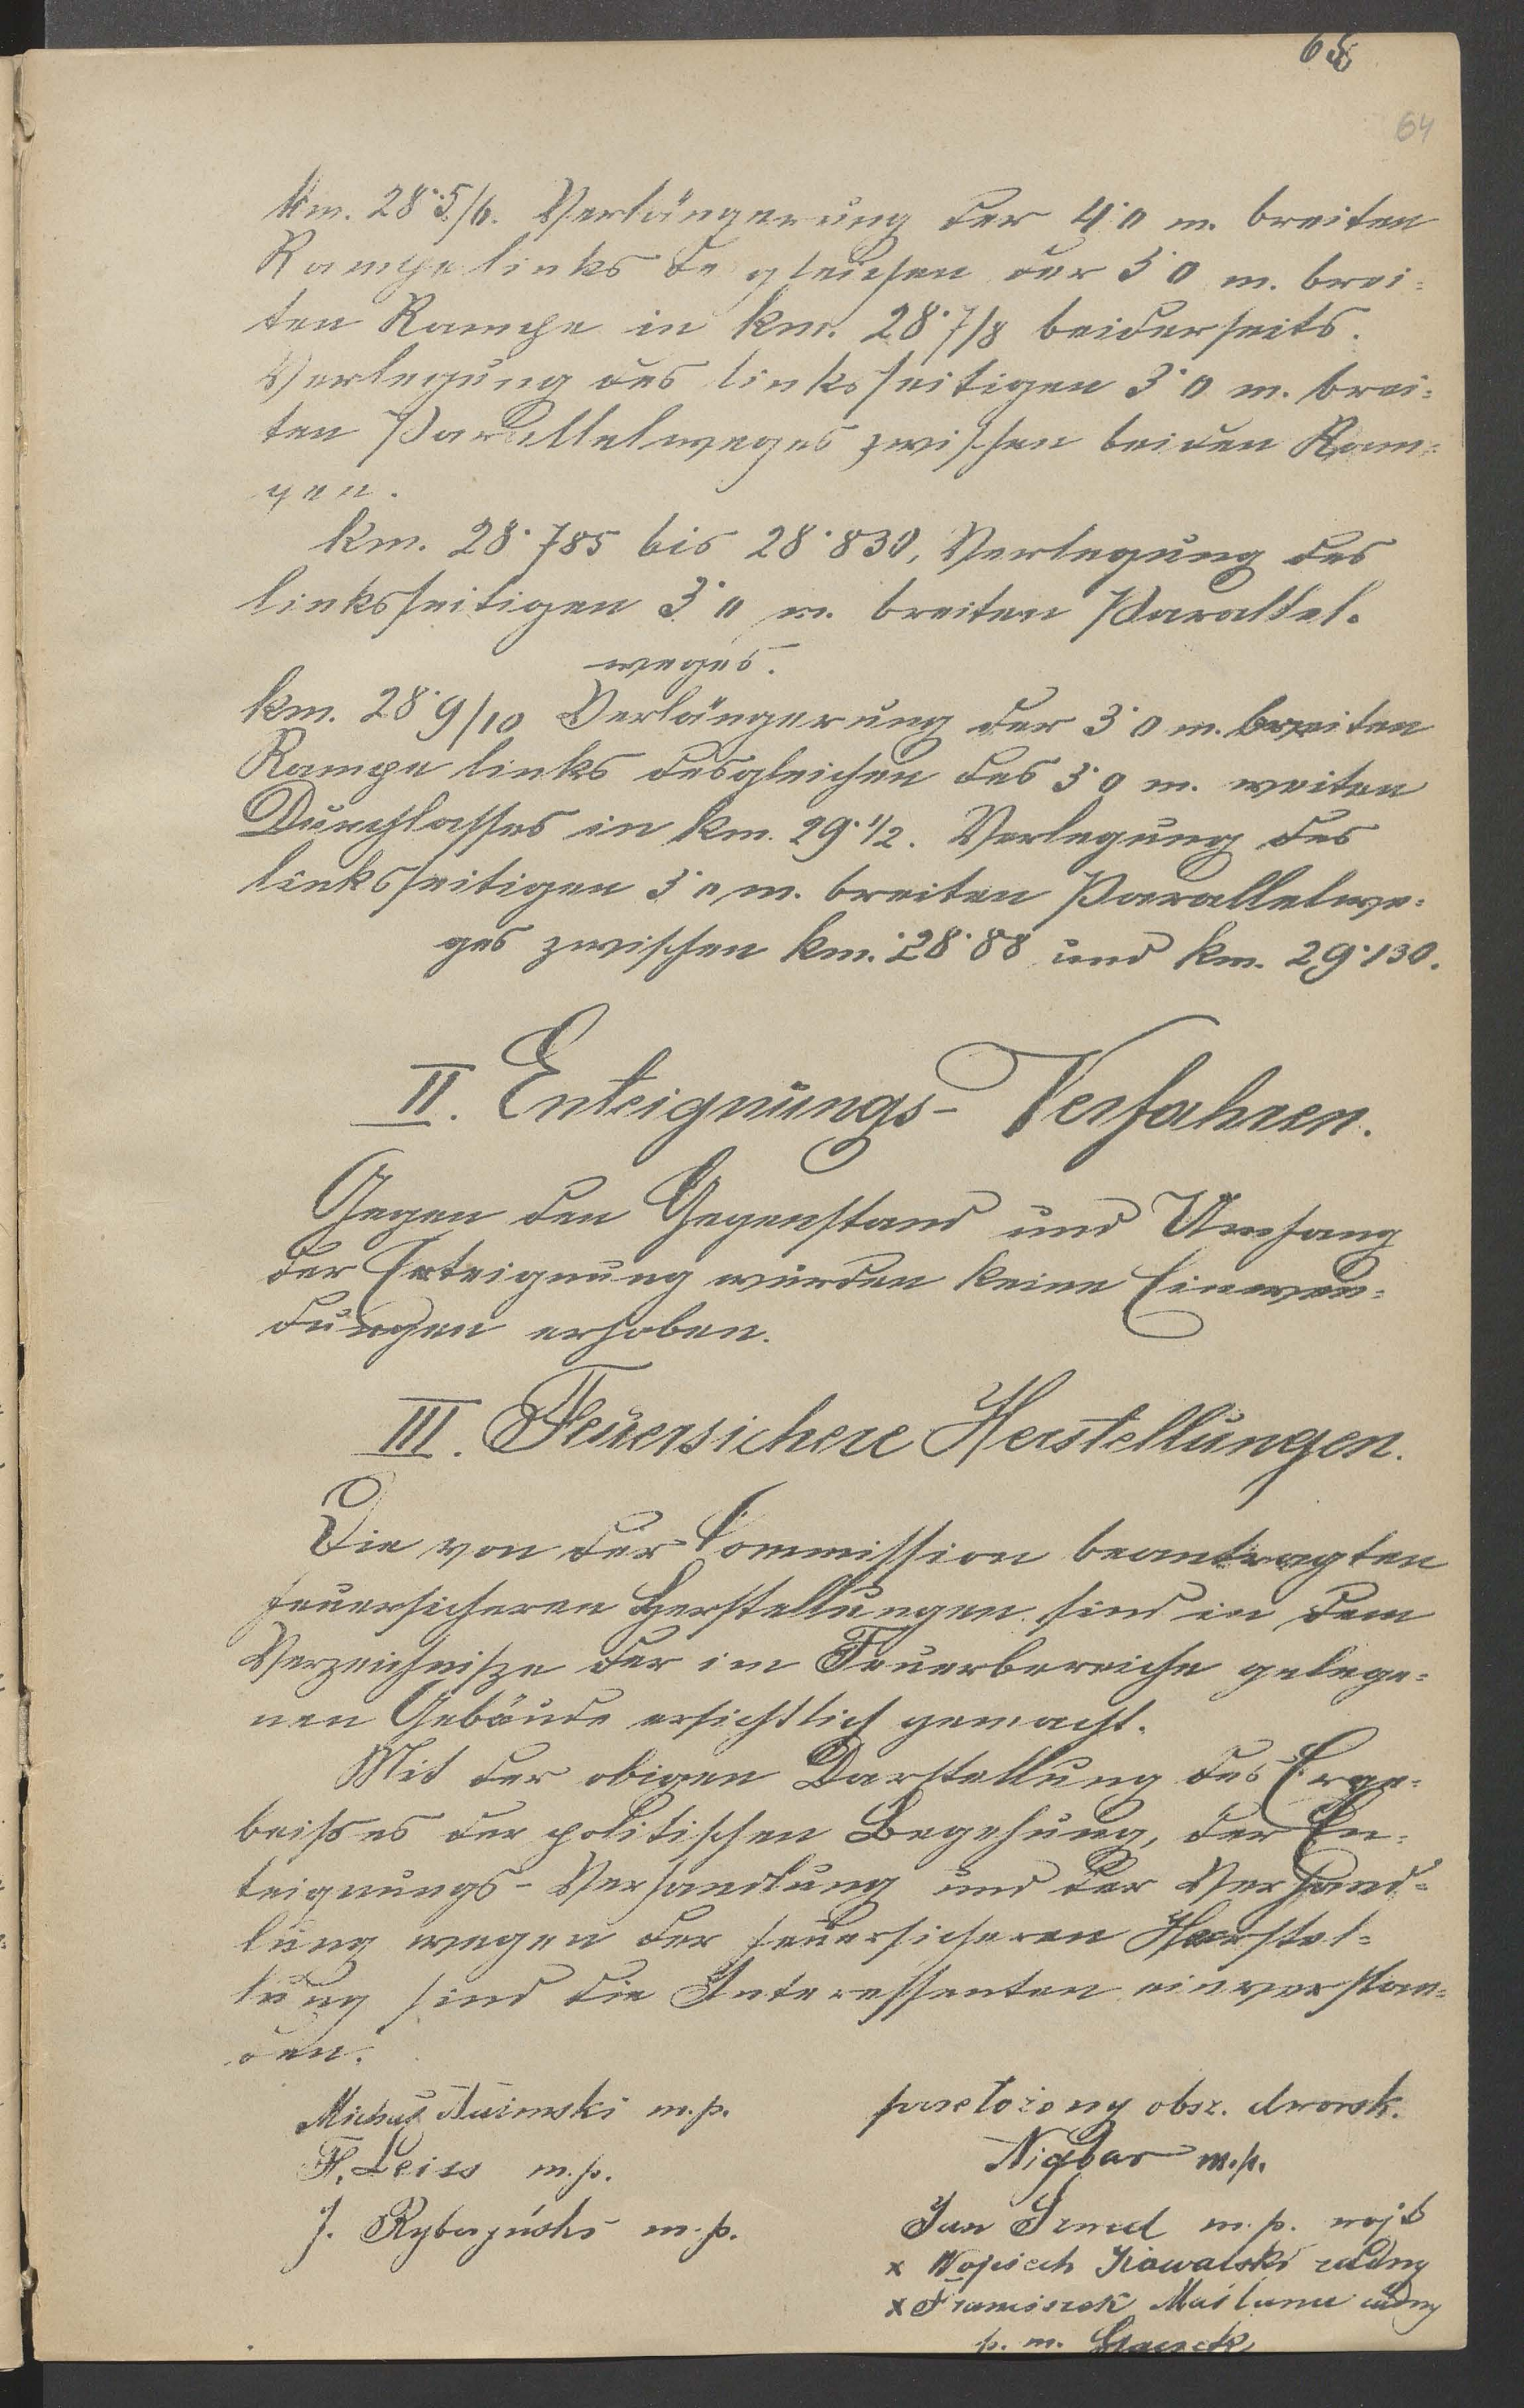 65
64
km. 28·5/6. Verlängerung der 4·0 m. breiten
Rampe links de gleichen der 3·0 m. brei=
ten Rampe in km. 28·7/8 beiderseits.
Verlegung des linksseitigen 3·0 m. brei=
ten Parallelweges zwischen beiden Ram=
pen.
km. 28·785 bis 28·830, Verlegung des
linksseitigen 3·0 m. breiten Parallel.
weges.
km. 28·9/10 Verlängerung der 3·0 m. breiten
Rampe links desgleichen des 3·0 m. weiten
Durchlasses in km. 29·1/2. Verlegung des
linksseitigen 3·0 m. breiten Parallelwe=
ges zwischen km. 28·88 und km. 29·130.
II. Enteignungs- Verfahren.
Gegen den Gegenstand und Umfang
der Enteignung wurden keine Einwen=
dungen erhoben.
III. Feuersichere Herstellungen.
Die von der Commission beantragten
feuersicheren Herstellungen sind in dem
Verzeichnisze der im Feuerbereiche gelege=
nen Gebäude ersichtlich gemacht.
Mit der obigen Darstellung des Erge=
bnisses der politischen Begehung, der En=
teignungs-Verhandlung und der Verhand=
lung wegen der feuersicheren Herstel=
lung sind die Interessenten einverstan=
den.
m.p.
F. Leiss m.p.
J. m.p.
obsz. dworsk.
m.p.
Jan m.p. wojt
x Wojciech Kowalski radny
x Franciszek radny
p. m.